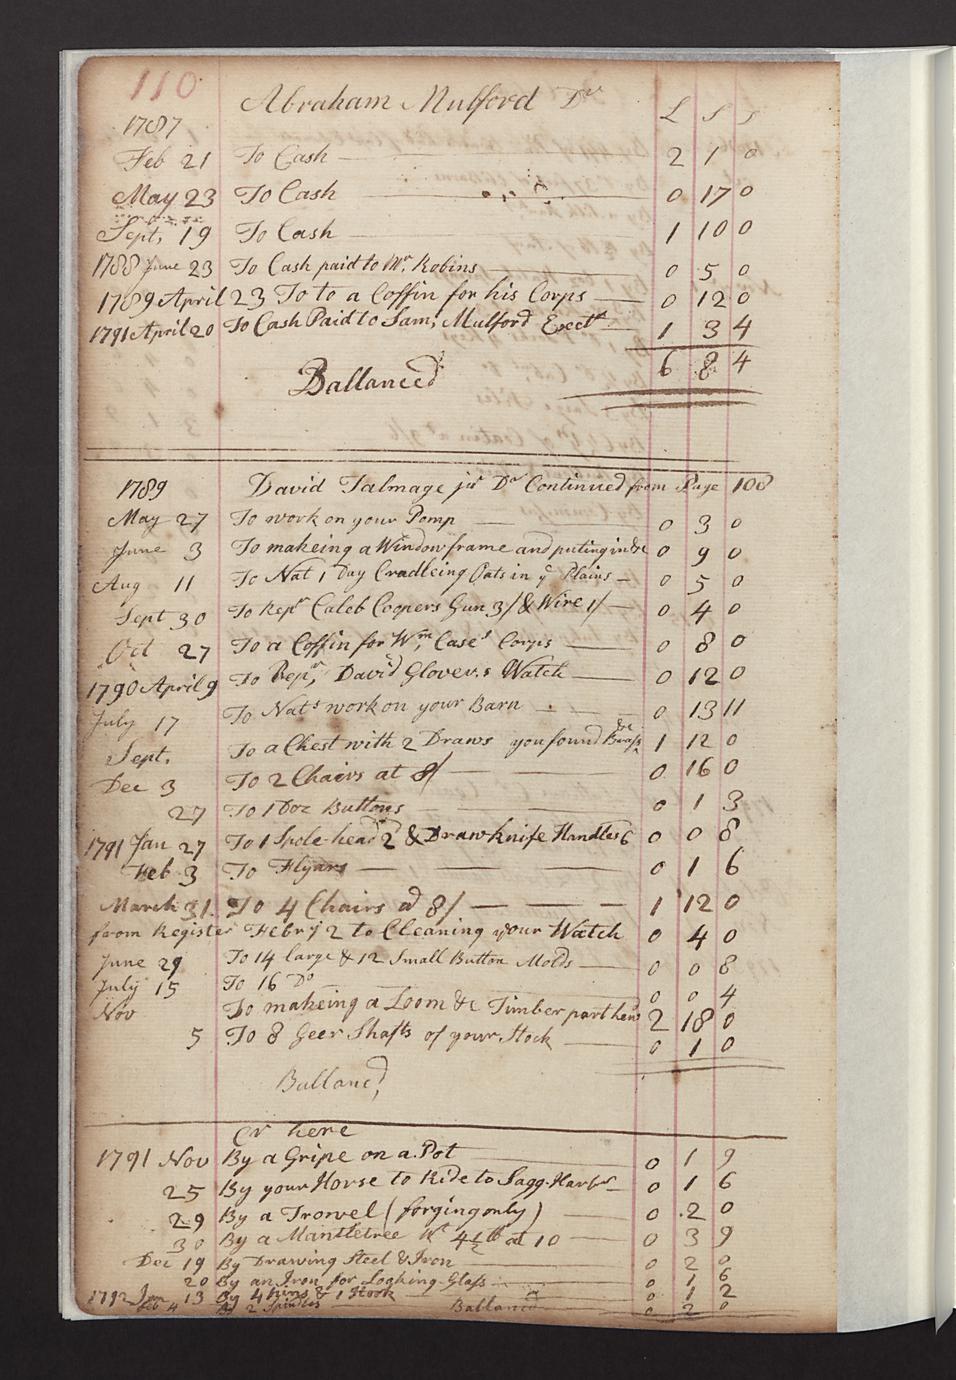 110
Abraham Mulford Dr L S
1787
Feb 21 To Cash 2 1 0
May 23 To Cash 0 17 0
Sept, 19 To Cash 1 10 0
1788 June 23 To Cash paid to Mr. Robins 0 5 0
1789 April 23 To to a Coffin for his Corps 0 12 0
1791 April 20 To Cash Paid to Sam, Mulford Exectr 1 3 4
6 8 4
Ballanced
1789 David Talmage jur Dr Continued from Page 108
May 27 To work on your Pomp 0 3 0
June 3 To makeing a Window frame and puting in &c 0 9 0
Aug 11 To Nat 1 Day Cradleing Oats in ye Plains 0 5 0
Sept 30 To Repr Caleb Coopers Gun 3/ & Wire 1/ 0 4 0
Oct 27 To a Coffin for Wm, Cases Corps 0 8 0
1790 April 9 To Repr, David Glover,s Watch 0 12 0
July 17 To Nats work on your Barn 0 13 11
Sept, To a Chest with 2 Draws you found &c Brass 1 12 0
Dec 3 To 2 Chairs at 8/ 0 16 0
27 To 1 Doz Buttons 0 1 3
1791 Jan 27 To 1 Spole-head 2 & Drawknife Handles 6 0 0 8
Feb 3 To Flyars 0 1 6
March 31. To 4 Chairs at 8/ 1 12 0
from Register Febry 2 to Cleaning your Watch 0 4 0
June 29 To 14 large & 12 Small Button Molds 0 0 8
July 15 To 16 Do 0 0 4
Nov To makeing a Loom &c Timber part hewd 2 18 0
5 To 8 Geer Shafts of your Stock 0 1 0
Ballancd,
Cr here
1791 Nov By a Gripe on a Pot 0 1 9
25 By your Horse to Ride to Sagg-Harbr 0 1 6
29 By a Trowel (forging only) 0 2 0
30 By a Mantletree Wt 4½ lb at 10 0 3 9
Dec 19 By Drawing Steel & Iron 0 2 0
20 By an Iron for Looking-Glass 0 1 6
1792 Jan 13 By 4 & 1 Hook 0 1 2
Feb 4 By 2 Spindles Ballanced 0 2 0